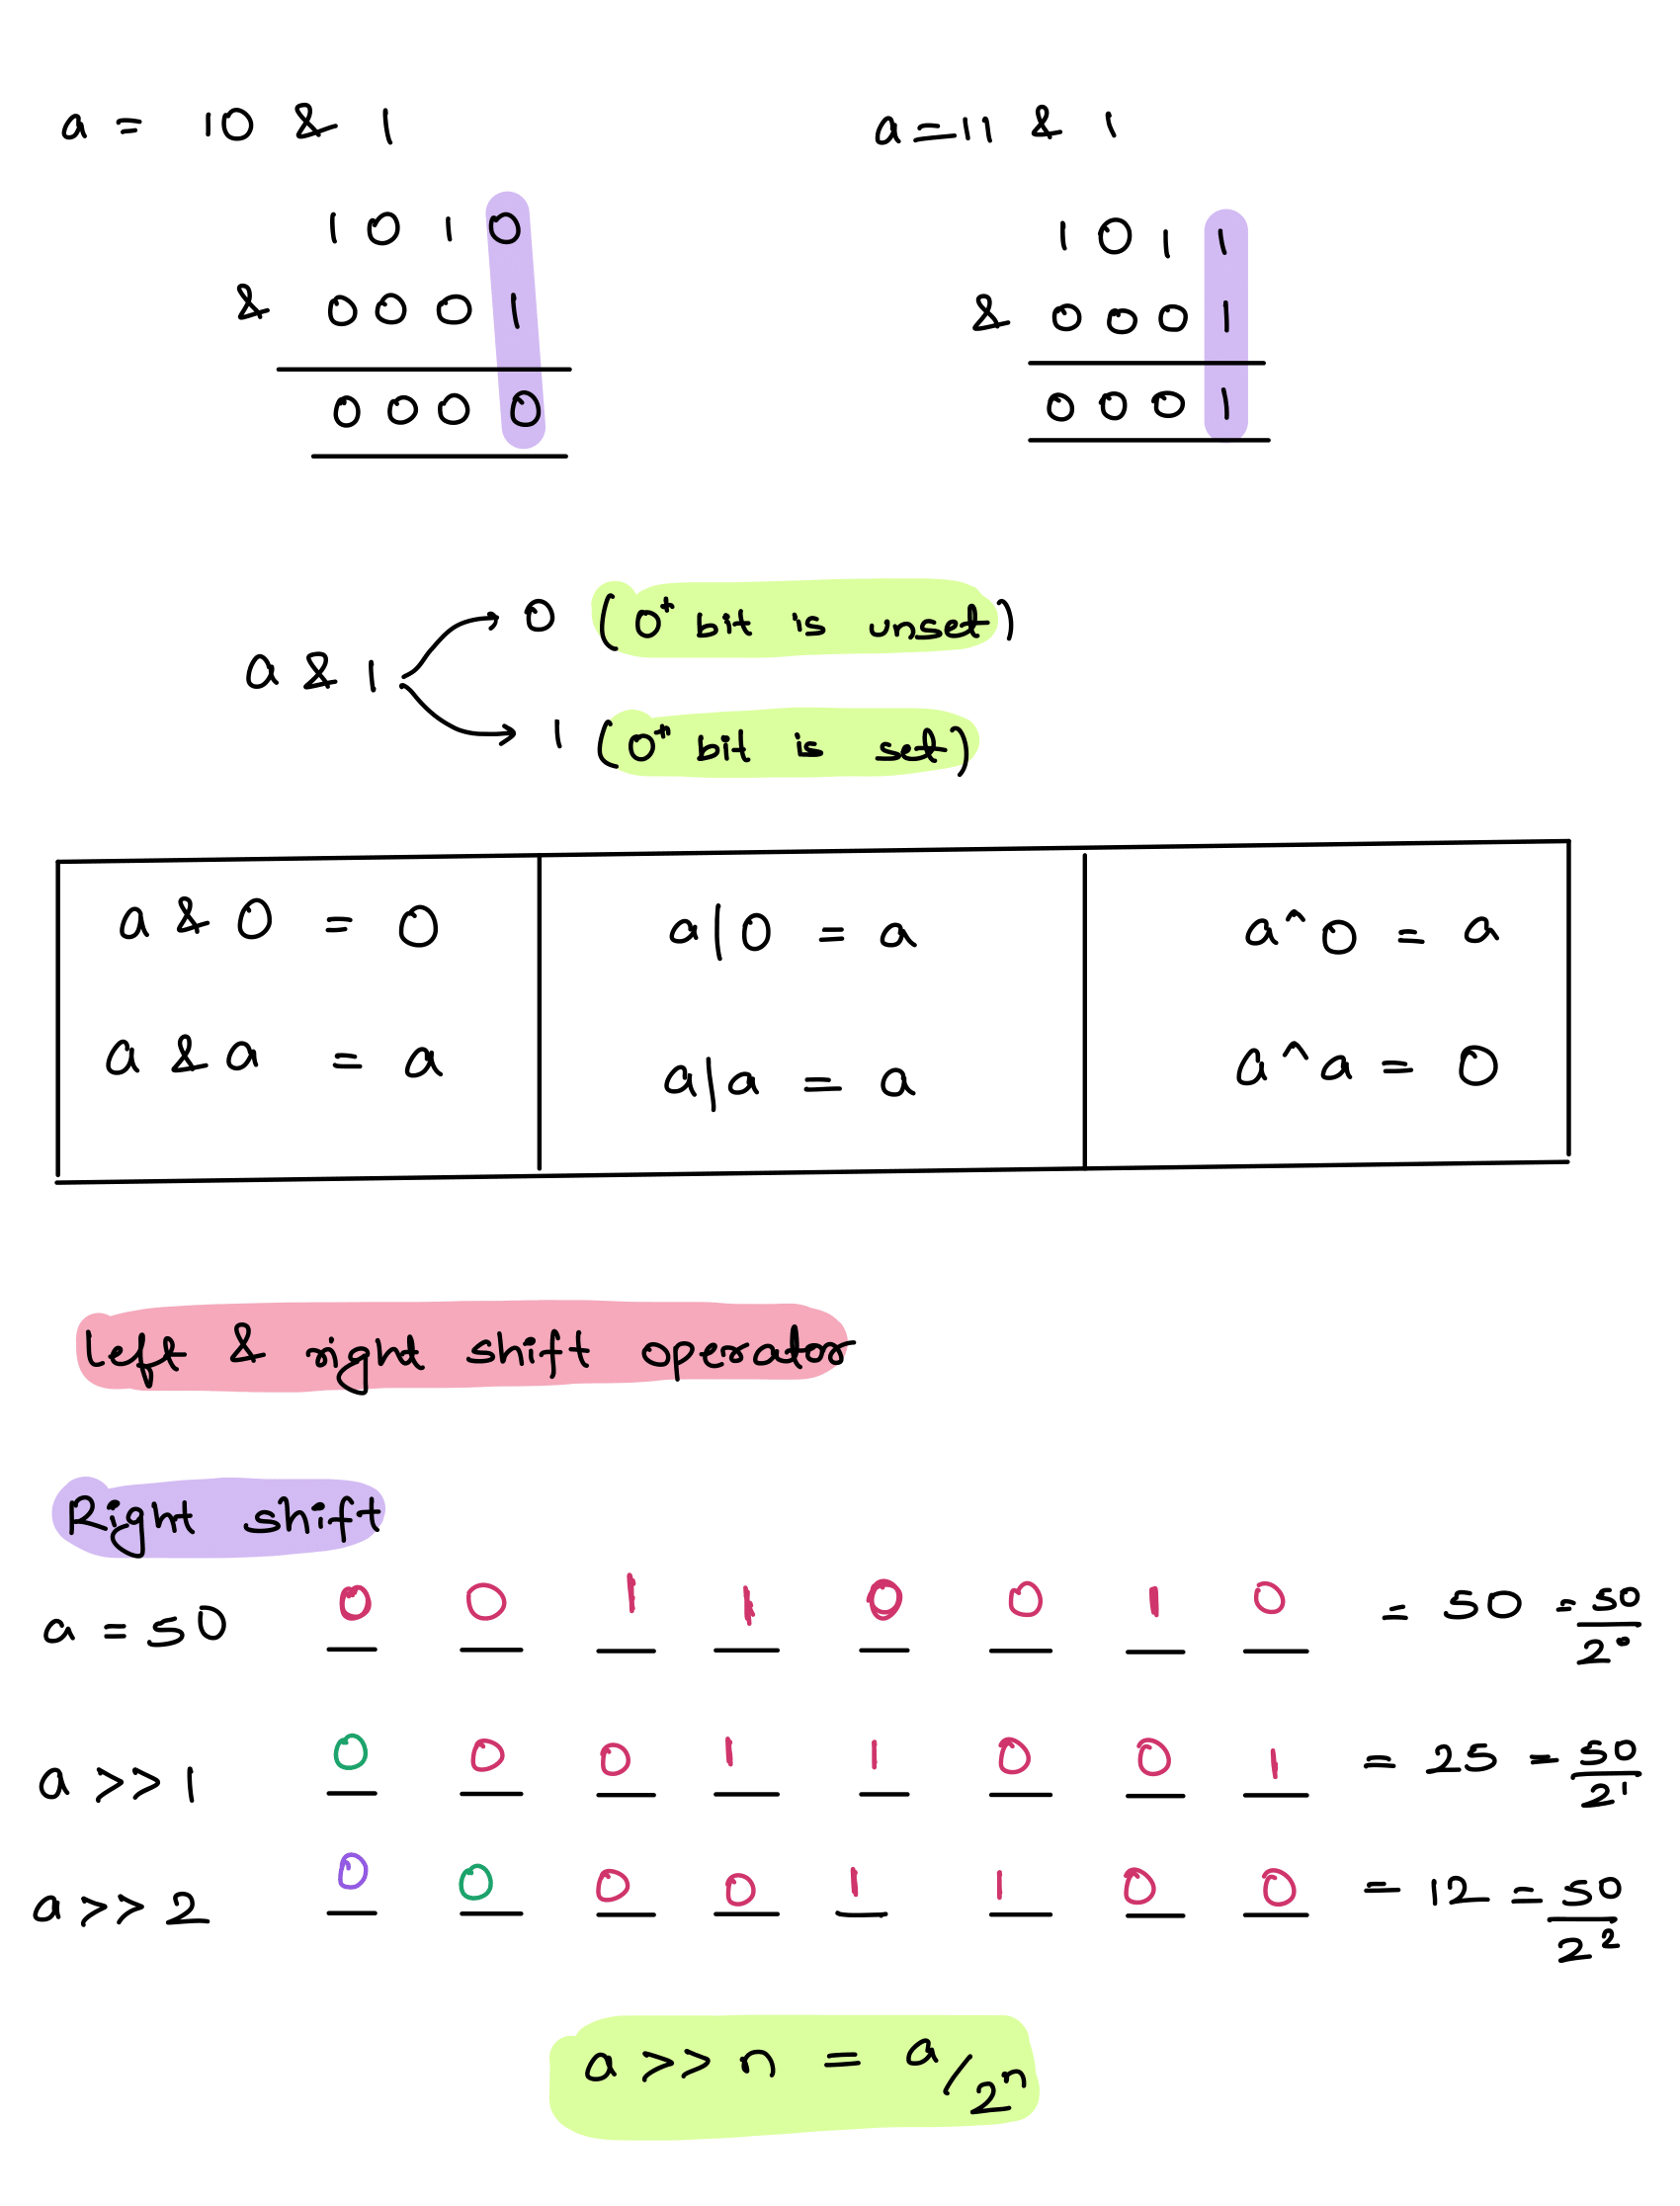 a = 10 & 1
1 0 1 0
& 0 0 0 1
0 0 0 0
a = 11 & 1
1 0 1 1
& 0 0 0 1
0 0 0 1
a & 1
0 (0th bit is unset)
1 (0th bit is set)
a & 0 = 0
a & a = a
a|0 = a
a|a = a
a^0 = a
a^a = 0
Left & right shift operator
Right shift
a = 50 0 0 1 1 0 0 1 0 = 50 = 50/2⁰
a >> 1 0 0 0 1 1 0 0 1 = 25 = 50/2¹
a >> 2 0 0 0 0 1 1 0 0 = 12 = 50/2²
a >> n = a/2ⁿ